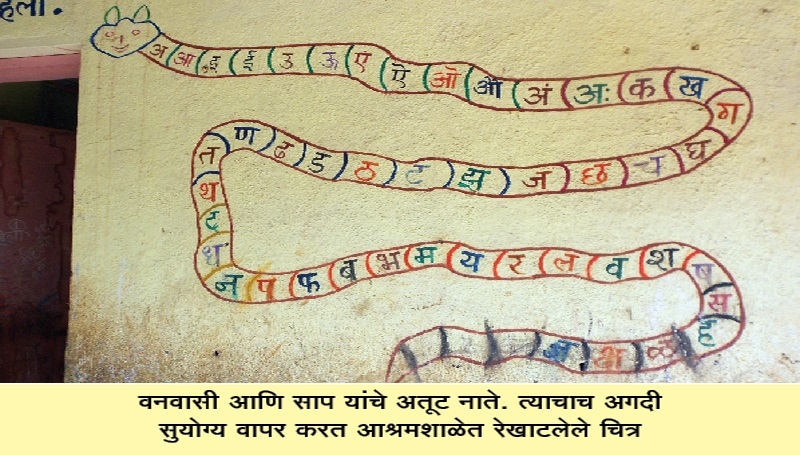 हिला.
अ आ इ ई उ ऊ ए ऐ ओ औ अं अः क ख
ग
घ च छ ज झ ट ठ ड ढ ण
त
थ
द
ध
न प फ ब भ म य र ल व श ष
स
ह
ळ क्ष ज्ञ
वनवासी आणि साप यांचे अतूट नाते. त्याचाच अगदी
सुयोग्य वापर करत आश्रमशाळेत रेखाटलेले चित्र